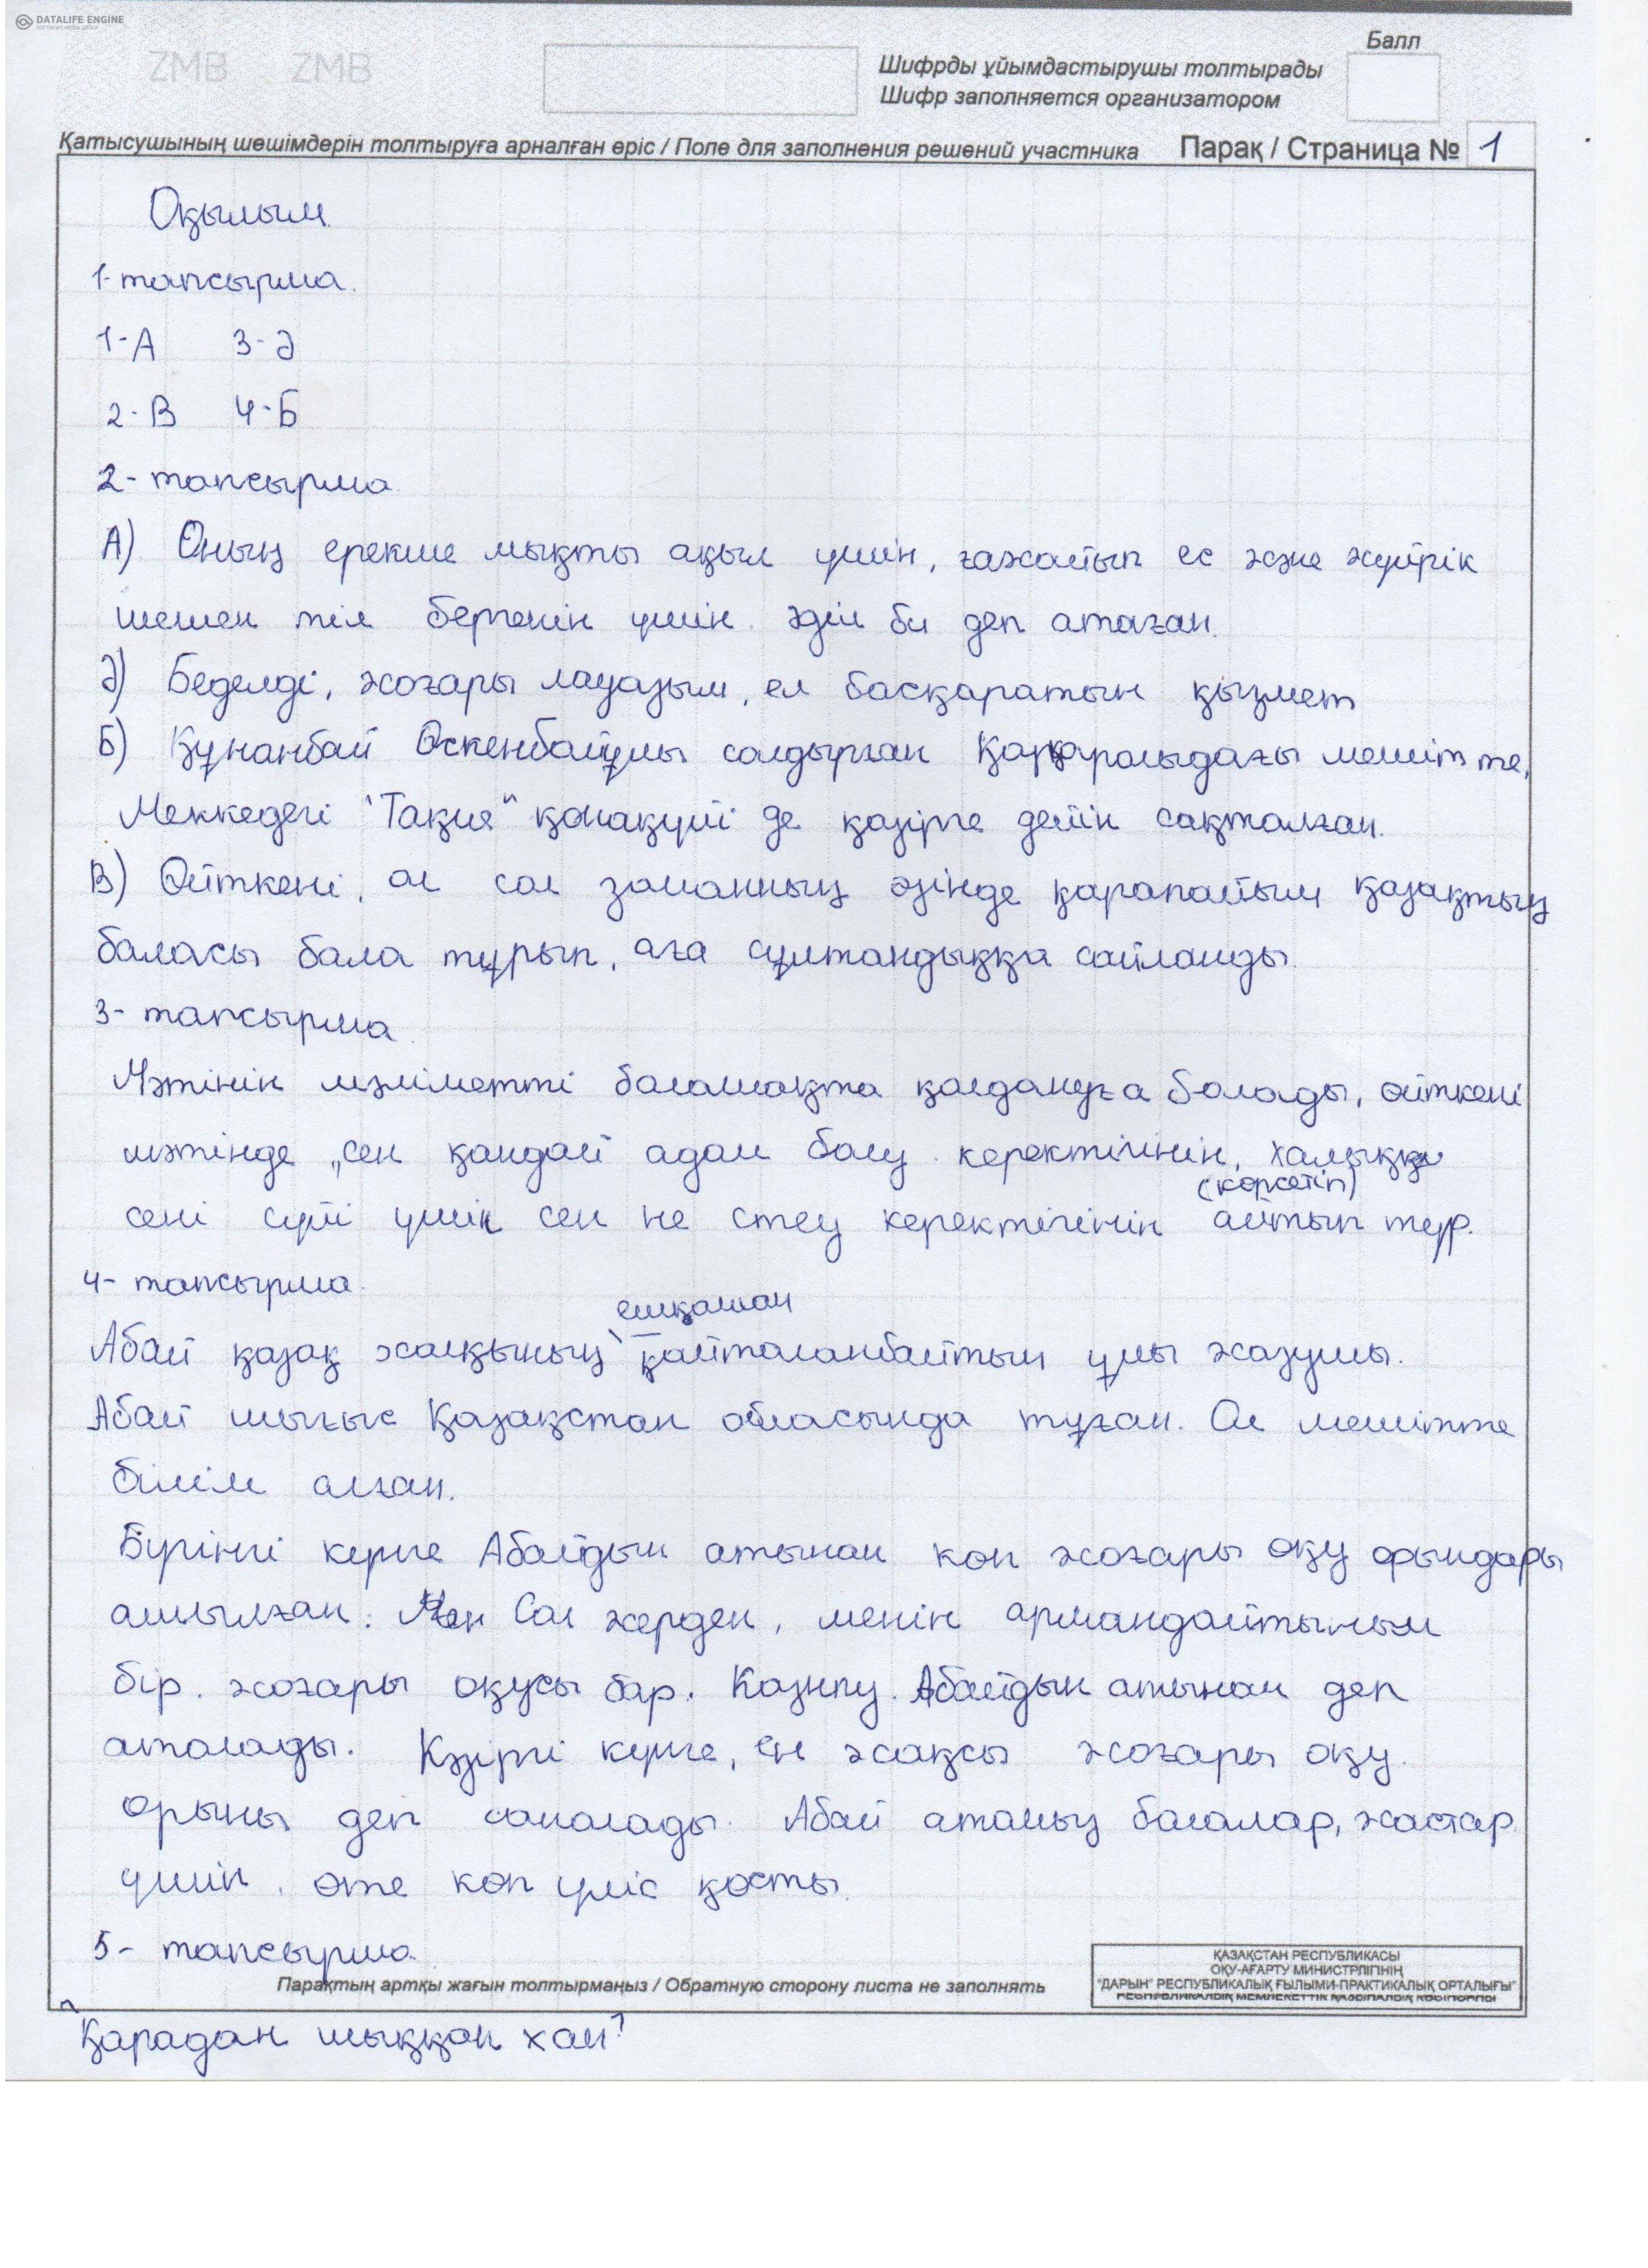 DATALIFE ENGINE
SOFTNEWS MEDIA GROUP
ZMB ZMB
Балл
Шифрды ұйымдастырушы толтырады
Шифр заполняется организатором
Қатысушының шешімдерін толтыруға арналған өріс / Поле для заполнения решений участника Парақ / Страница № 1
Оқылым
1-тапсырма.
1-А 3-Ә
2-В 4-Б
2-тапсырма
А) Оның ерекше мықты ақыл үшін, ғажайып ес және жүйрік
шешен тіл бергенін үшін әділ би деп атаған.
Ә) Беделді, жоғары лауазым, ел басқаратын қызмет
Б) Құнанбай Өскенбайұлы салдырған Қарқаралыдағы мешіт те,
Меккедегі "Тақия" қонақүйі де қазірге дейін сақталған.
В) Өйткені, ол сол заманның өзінде қарапайым қазақтың
баласы бола тұрып, аға сұлтандыққа сайланды.
3-тапсырма
Мәтінін мәліметті болашақта қолдануға болады, өйткені
мәтінде „сен қандай адам болу керектігінін, халыққа
(көрсетіп)
сені сүйі үшін сен не стеу керектігінін айтып тұр.
4-тапсырма.
ешқашан
Абай қазақ халқының қайталанбайтын ұлы жазушы.
Абай шығыс Қазақстан обласында туған. Ол мешітте
білім алған.
Бүгінгі күнге Абайдын атынан көп жоғары оқу орындары
ашылған. Сол жерден, менін армандайтыным
бір. жоғары оқусы бар. Казнпу. Абайдын атынан деп
аталады. Кәзіргі күнге, ен жақсы жоғары оқу.
орыны деп саналады. Абай атаның балалар, жастар
үшін, өте көп үліс қосты.
5-тапсырма
Парақтың артқы жағын толтырмаңыз / Обратную сторону листа не заполнять
ҚАЗАҚСТАН РЕСПУБЛИКАСЫ
ОҚУ-АҒАРТУ МИНИСТРЛІГІНІҢ
"ДАРЫН" РЕСПУБЛИКАЛЫҚ ҒЫЛЫМИ-ПРАКТИКАЛЫҚ ОРТАЛЫҒЫ"
РЕСПУБЛИКАЛЫҚ МЕМЛЕКЕТТІК ҚАЗЫНАЛЫҚ КӘСІПОРНЫ
"Қарадан шыққан хан"